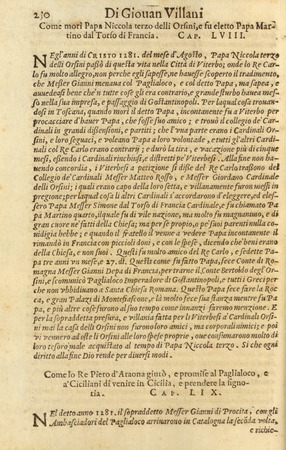 230 Di Giouan Villani
Come morì Papa Niccola terzo delli Orsini, e fu eletto Papa Mar-
tino dal Torso di Francia. CAP. LVIII.
NEgl'anni di CRISTO 1281. del mese d'Agosto, Papa Niccola terzo
delli Orsini passò di questa vita nella Città di Viterbo; onde lo Re Car-
lo fu molto allegro, non perche egli sapesse, ne hauesse scoperto il tradimento,
che Messer Gianni menaua col Paglialoco, e col detto Papa, ma sapea, e
auuedeasi bene che in tutte cose gli era contrario, e grande sturbo hauea mes-
so nella sua impresa, e passaggio di Gostantinopoli. Per laqual cosa trouan-
dosi in Toscana, quando morì il detto Papa, incontanente fu a Viterbo per
procacciare d'hauer Papa, che fosse suo amico; e trouò il collegio de' Car-
dinali in grandi dissensioni, e partiti; che l'vna parte erano i Cardinali Or-
sini, e loro seguaci, e voleano Papa a loro volontade, e tutti gl'altri Cardi-
nali col Re Carlo erano contrarij; e durò la
tira, e vacazione più di cinque
mesi, essendo i Cardinali rinchiusi, e distretti pe' Viterbesi. Alla fine non ha-
uendo concordia, i Viterbesi a petizione si disse del Re Carlo trassono del
Collegio de' Cardinali Messer Matteo Rosso, e Messer Giordano Cardinale
delli Orsini; i quali erano capo della loro setta, e villanamente furon messi in
pregione; per laqual cosa li altri Cardinali s'accordaron d'eleggere, ed eles-
sero Papa Messer Simone dal Torso di Francia Cardinale, e fu chiamato Pa-
pa Martino quarto, il quale fu di vile nazione, ma molto fu magnanimo, e di
gran cuore ne' fatti della Chiesa; ma per se propio, e pe' suoi parenti nulla co-
uidigia hebbe; e quando il fratello il venne a vedere Papa incontanente il
rimandò in Francia con piccoli doni, e con le spese, dicendo che i beni erano
della Chiesa, e non suoi. Questi fu molto amico del Re Carlo, e sedette Pa-
pa tre anni vn mese, e 27. dì. Questi come fu fatto Papa, fece Conte di Ro-
magna Messer Gianni Depa di Francia, per trarne il Conte Bertoldo degl'Or-
sini, e scomunicò Paglialoco Imperadore di Gostantinopoli, e tutti Greci per
che non vbbidiuano a Santa Chiesa Romana. Questo Papa fece fare la Roc-
ca, e gran Palazi di Montefiascone, e là molto fece sua stanza mentre fu Pa-
pa, e più altre cose furono al suo tempo come innanzi faremo menzione. E
per la sopraddetta presura, e villania fatta per li Viterbesi a' Cardinali Orsi-
ni mai la casa delli Orsini non furono loro amici, ma corporali nimici; e poi
vi vennero ad oste li Orsini alle loro spese proprie, oue consumarono molto di
loro tesoro male acquistato al tempo di Papa Niccola terzo. Sì che ogni
diritto alla fine Dio rende per diuersi modi.
Come lo Re Piero d'Araona giutò, e promise al Paglialoco, e
a' Ciciliani di venire in Cicilia, e prendere la signo-
ria. CAP. LIX.
NEl detto anno 1281. il sopraddetto Messer Gianni di Procita, con gli
Ambasciadori del Paglialoco arriuarono in Catalogna la secōda volta,
e richie-